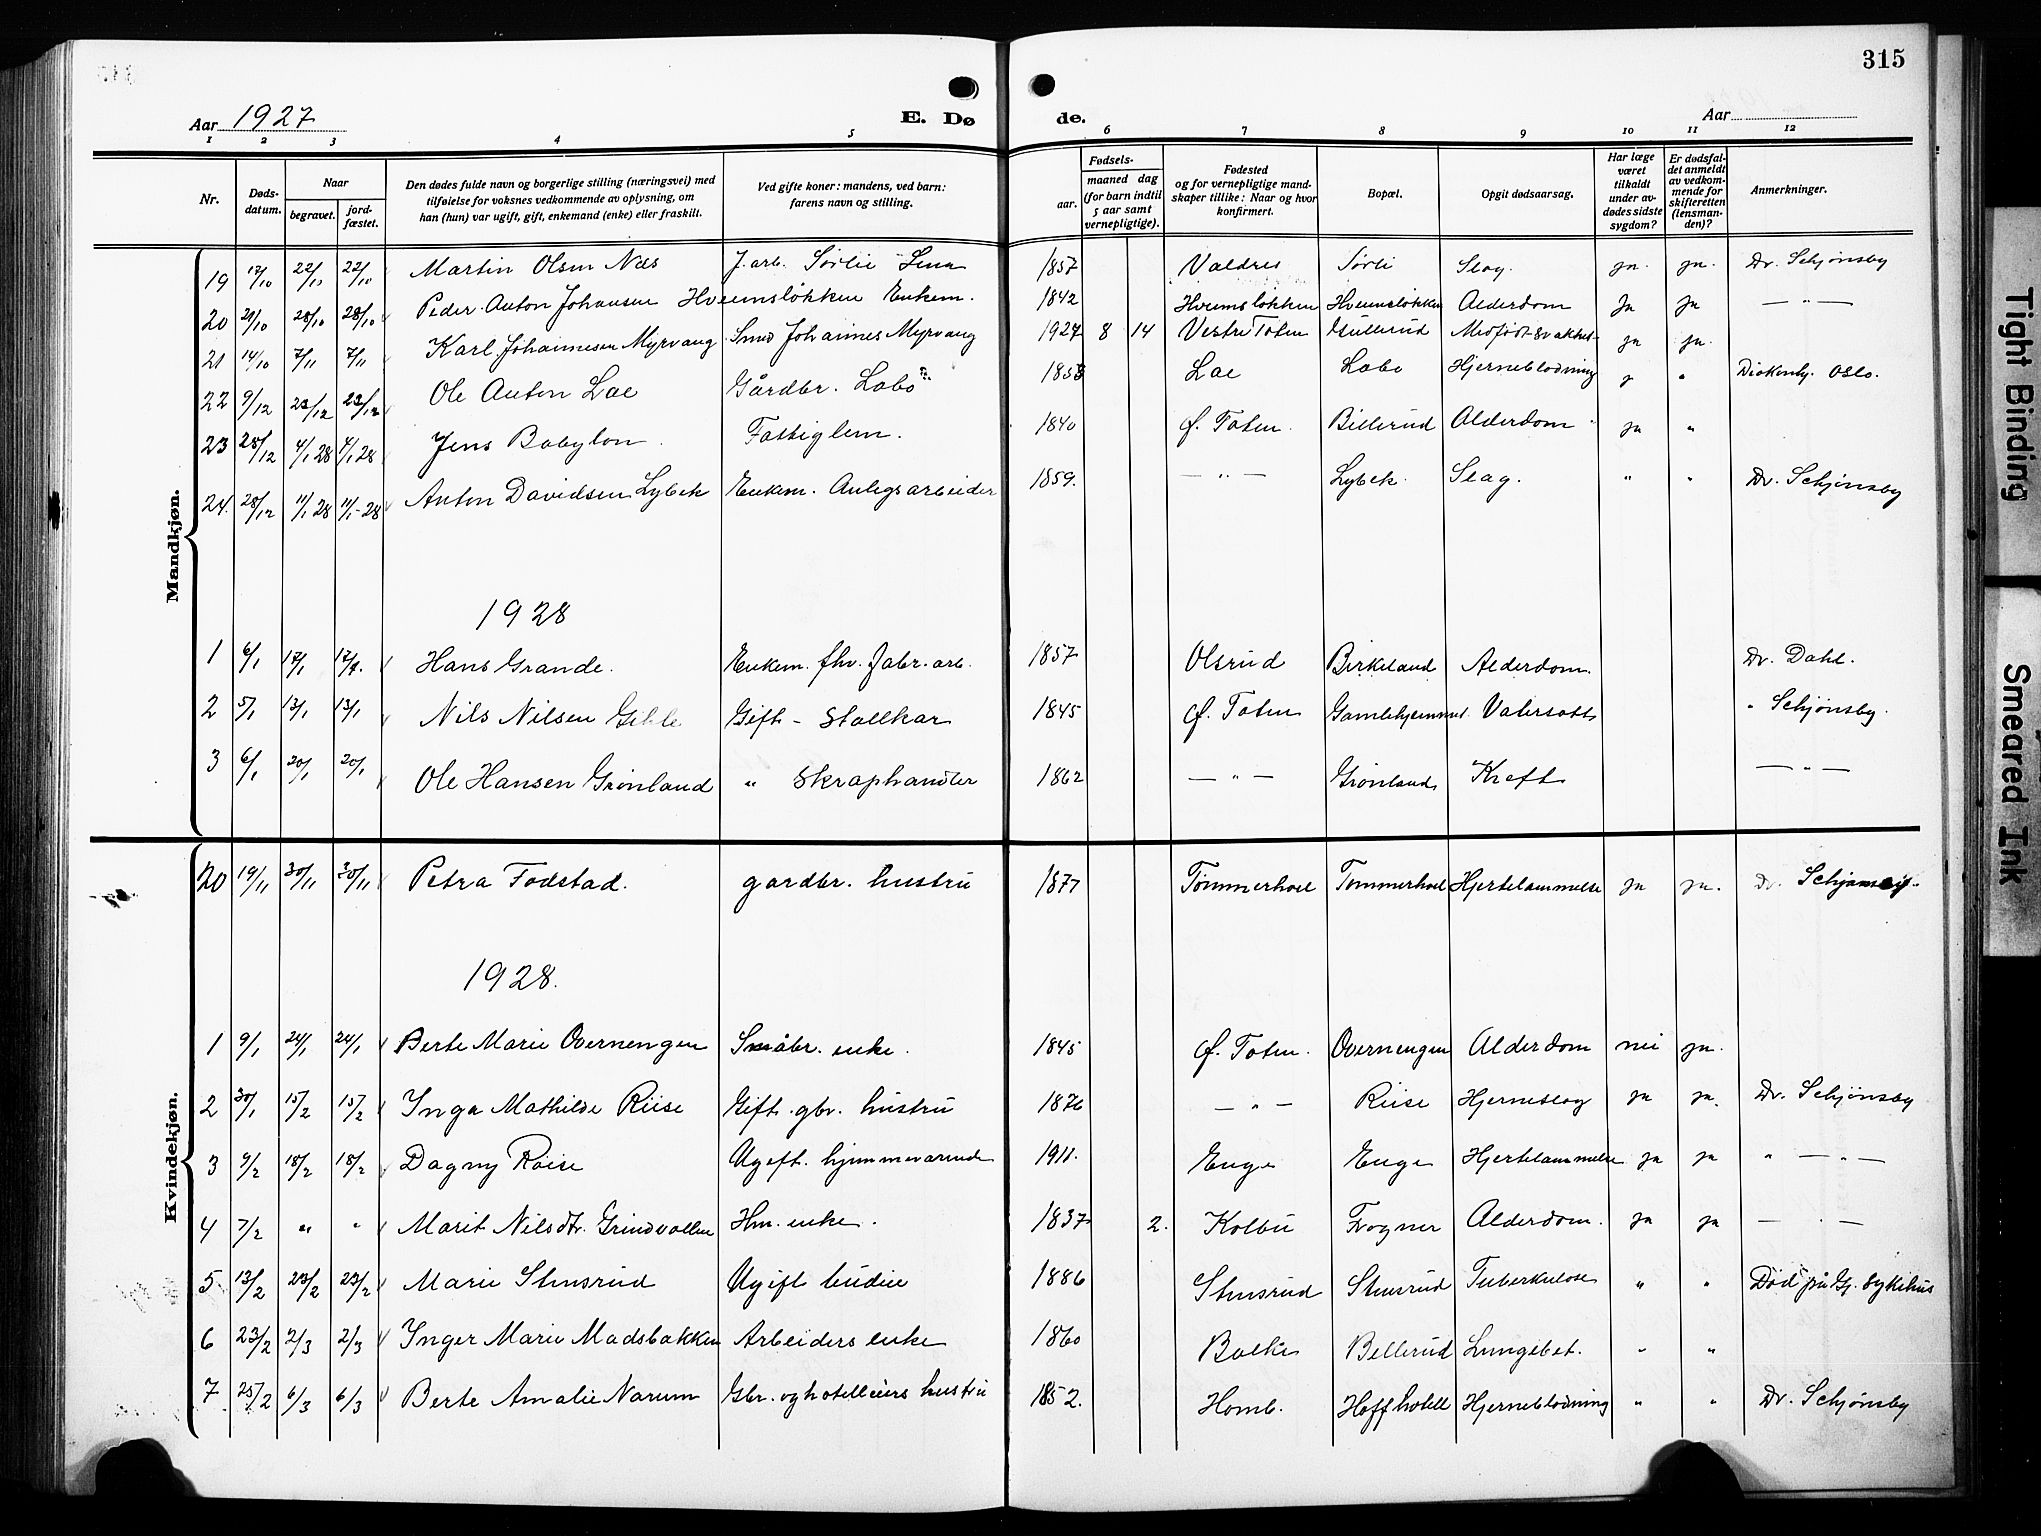 315
Aar 1927 E. Dø de. Aar
1 2 3 4 5 6 7 8 9 10 11 12
Nr. Døds-datum. Naar begravet. jord-fæstet. Den dødes fulde navn og borgerlige stilling (næringsvei) med tilføielse for voksnes vedkommende av oplysning, om han (hun) var ugift, gift, enkemand (enke) eller fraskilt. Ved gifte koner: mandens, ved barn: farens navn og stilling. Fødsels- aar. maaned dag (for barn indtil 5 aar samt vernepligtige). Fødested og for vernepligtige mandskaper tillike: Naar og hvor konfirmert. Bopæl. Opgit dødsaarsag. Har læge været tilkaldt under avdødes sidste sygdom? Er dødsfaldet anmeldt av vedkommende for skifteretten (lensmanden)? Anmerkninger.
Mandkjøn.
19 17/10 22/10 22/10 Martin Olsen Næs J. arb. Sørlie Lena 1857 Valdres Sørli Slag. ja. ja. Dr. Schjønsby
20 21/10 28/10 28/10 Peder Anton Johansen Hveemsløkken Enkem. 1842 Hveemsløkken Hveemsløkken Alderdom Ja Ja — " —
21 14/10 7/11 7/11 Karl Johannesen Myrvang Smed Johannes Myrvang 1927 8 14 Vestre Toten Medfødt svakhet ja ja.
22 9/12 23/12 23/12 Ole Anton Loe Gårdbr. Labo 1853 Loe Labo Hjerneblødning " Diakonhj. Oslo.
23 28/12 4/1 28 4/1 28 Jens Babylon. Fattiglem. 1840 Ø. Toten. Billerud Alderdom ja "
24. 28/12 11/1 28 11/1-28 Anton Davidsen Lybek Enkem. Anlegsarbeider 1859. — " — Lybek. Slag. " " Dr. Schjønsby
1928
1 6/1 17/1 17/1. Hans Grande. Enkem. fhv. fabr. arb. 1857 Olsrud Birkeland Alderdom. Dr. Dahl.
2 5/1 13/1 13/1 Nils Nilsen Gihle Gift - Stallkar 1845 Ø. Toten Gamlehjemmet Vatersott " Schjønsby.
3 6/1 20/1 20/1 Ole Hansen Grønland " Skraphandler 1862 — " — Grønland Kreft — " —
Kvindekjøn.
20 19/11 30/11 30/11 Petra Fodstad. gardbr. hustru 1877 Tømmerhol Tømmerhol Hjertelammelse ja ja. Dr. Schjønsby.
1928.
1 9/1 24/1 24/1 Berte Marie Overnengen Småbr. enke. 1845 Ø. Toten. Overnengen Alderdom nei ja.
2 30/1 15/2 15/2 Inga Mathilde Riise Gift. gbr. hustru 1876 — " — Riise Hjerneslag ja ja. Dr. Schjønsby
3 9/2 18/2 18/2 Dagny Røise Ugift. hjemmeværende 1911. Enge Enge Hjertelammelse ja ja " — " —
4 7/2 " " Marit Nilsdtr. Grindvollen Hm. enke. 1837 2. Kolbu Frogner Alderdom. ja ja — " —
5 13/2 23/2 23/2 Marie Stensrud Ugift budeie 1886 Stensrud Stensrud Tuberkulose " " Død på Gj. sykehus
6 23/2 2/3 2/3 Inger Marie Madsbakken Arbeiders enke 1860 Balke Billerud Lungebet. " "
7 25/2 6/3 6/3 Berte Amalie Narum Gbr. og hotelleiers hustru 1852. Homb. Hoff hotell Hjerneblødning " " Dr. Schjønsby
Tight Binding
Smeared Ink